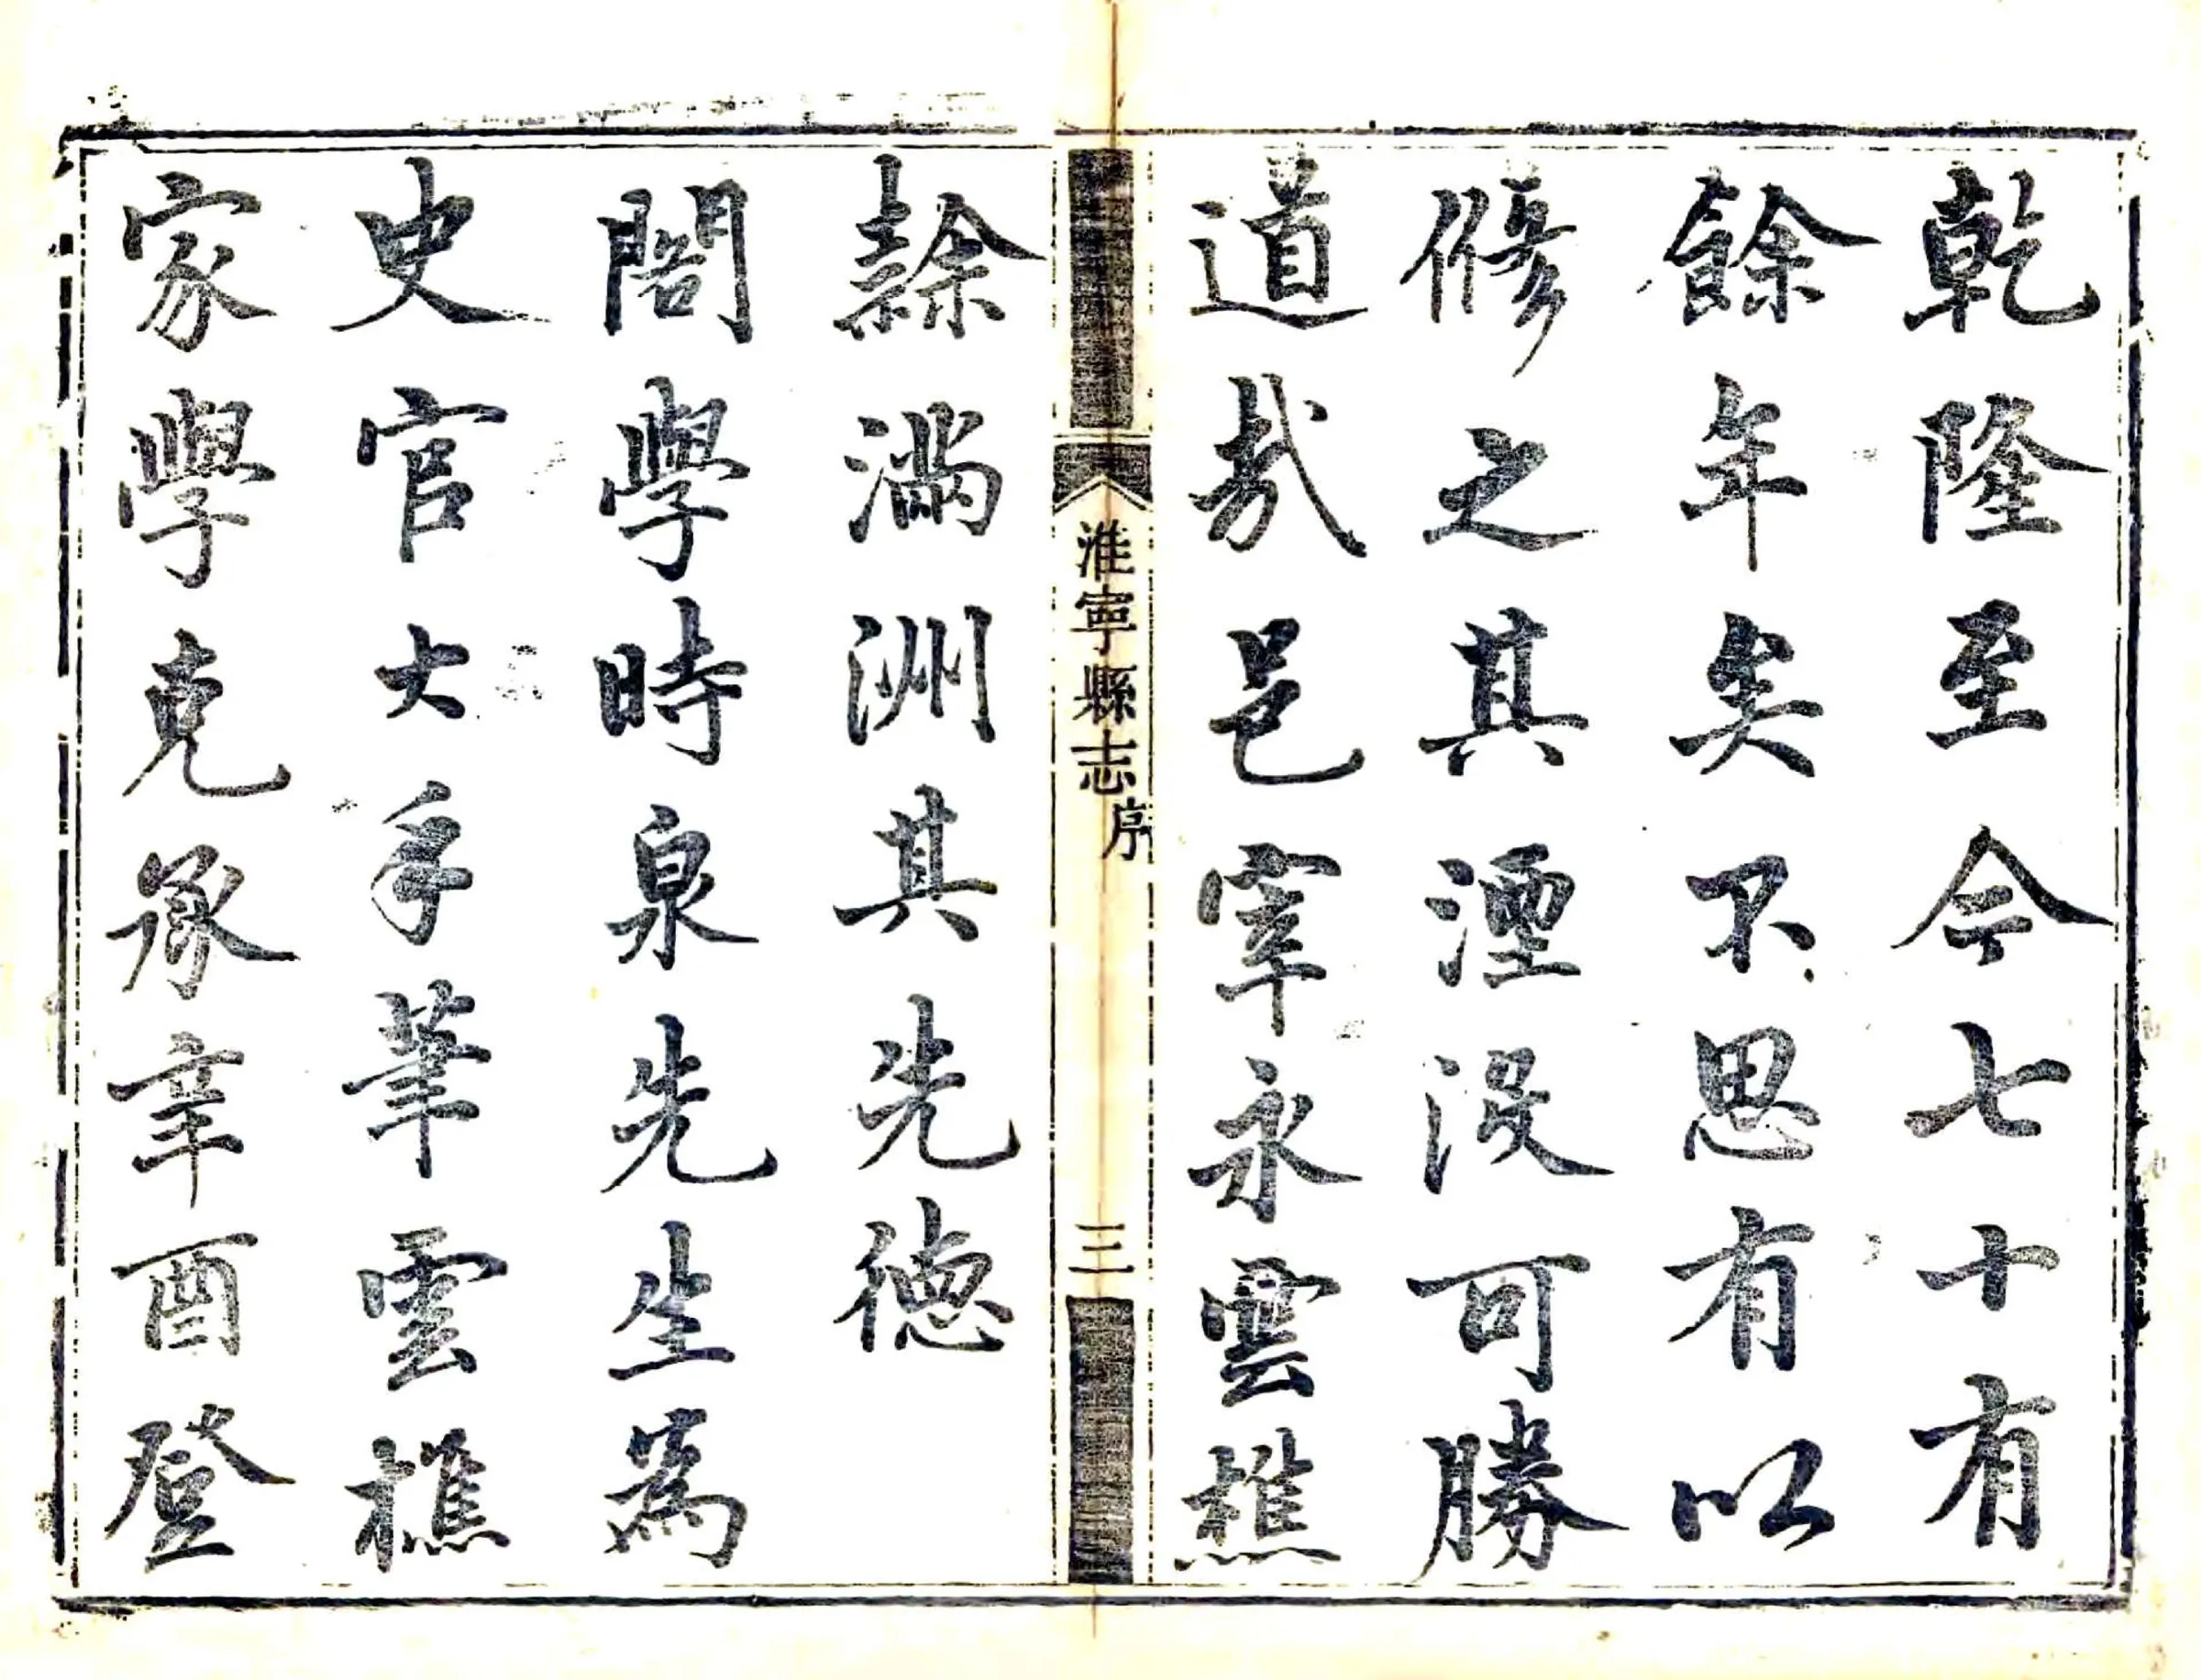 乾隆至今七十有
餘年矣不思有以
脩之其湮没可勝
道哉邑宰永雲樵
淮寧縣志
序
三
隸滿洲其先德
閣學時泉先生為
史官大手筆雲樵
家學克承辛酉登